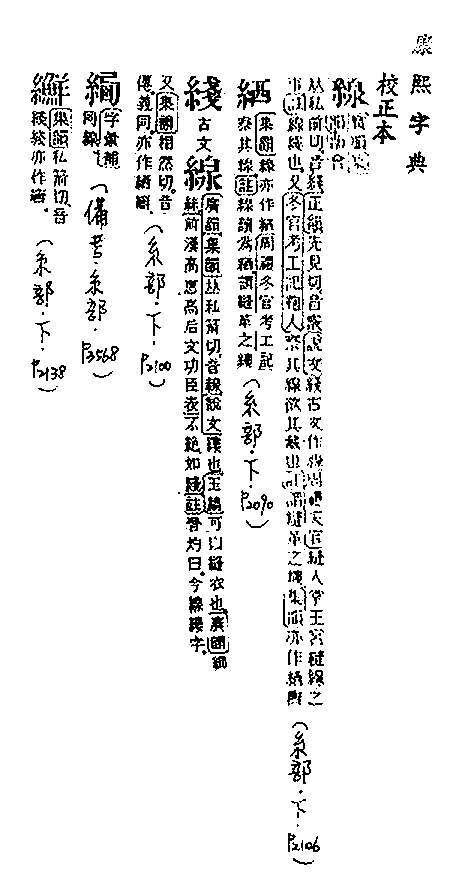 康熙字典
校正本
線
𠀤私箭切音綫正韻先見切音霰說文綫古文作線周禮天官縫人掌王宮縫線之
事註線縷也又冬官考工記鮑人察其線欲其藏也註謂縫革之縷集韻亦作綫
(糸部·下·P2106)
綫
集韻線亦作綫周禮冬官考工記
察其線註線讀為綫謂縫革之縷
(糸部·下·P2090)
綫
古文
線
廣韻集韻𠀤私箭切音線說文縷也玉篇可以縫衣也廣韻細
絲前漢高惠高后文功臣表不絕如綫註晉灼曰今線縷字
又集韻相然切音
僊義同亦作
(糸部·下·P2100)
字彙補
同線
(備考·糸部·P3568)
集韻私箭切音
線綫亦作
(糸部·下·P2138)